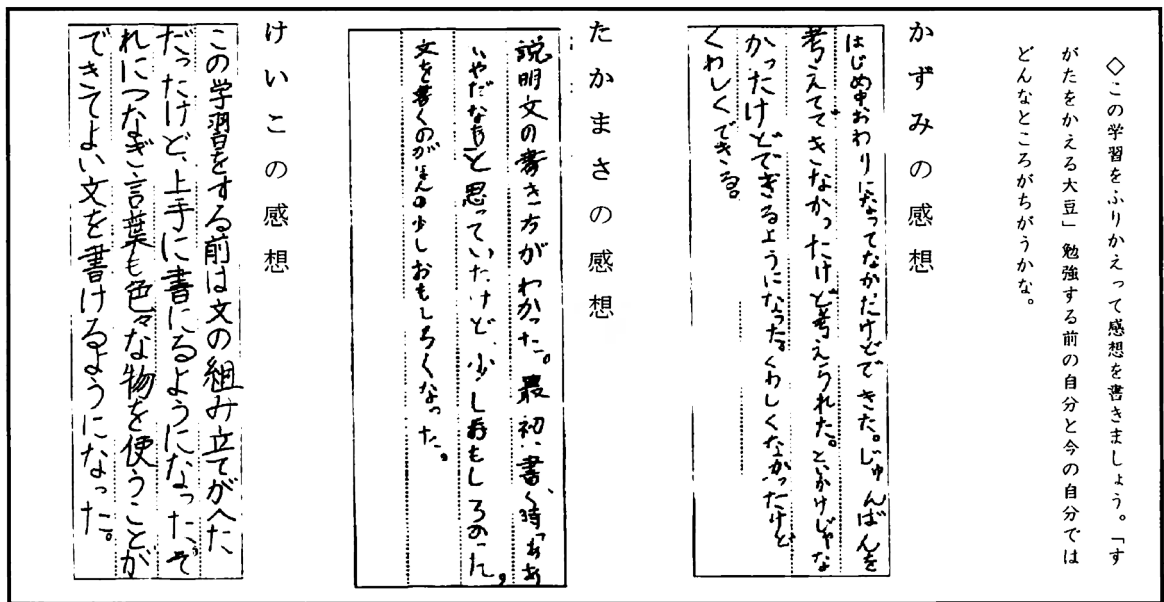 ◇この学習をふりかえって感想を書きましょう。「す
がたをかえる大豆」勉強する前の自分と今の自分では
どんなところがちがうかな。
かずみの感想
はじめ中おわりになってなかたけどできた。じゅんばんを
考えてできなかったけど考えられた。といかけじゃな
かったけどできるようになった。くわしくなかったけど
くわしくできる。
たかまさの感想
説明文の書き方がわかった。最初、書く時「ああ
いやだなあ」と思っていたけど、少しおもしろかった。
文を書くのがほんの少しおもしろくなった。
けいこの感想
この学習をする前は文の組み立てがへた
だったけど、上手に書にるようになった。そ
れにつなぎ言葉も色々な物を使うことが
できてよい文を書けるようになった。